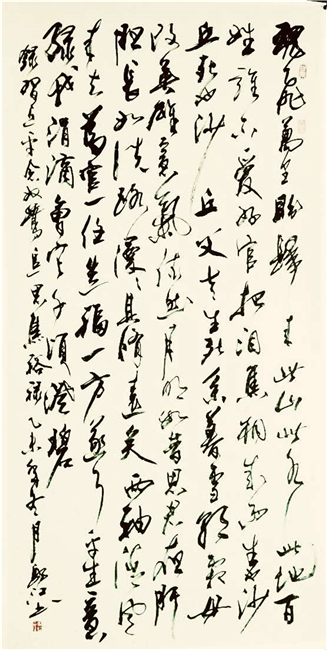 魂飛萬里盼歸来此山此水此地百
姓誰不愛好官把泪焦桐成雨生也沙
丘死也沙丘父老生死系暮雪朝霜毋
改英雄意氣依然月明如昔思君夜夜肝
胆長如洗路漫漫其脩遠矣两袖清風
来去為官一任造福一方遂了平生意
绿我涓滴會它千頃澄碧
錄習近平念奴嬌追思焦裕禄乙未年冬月